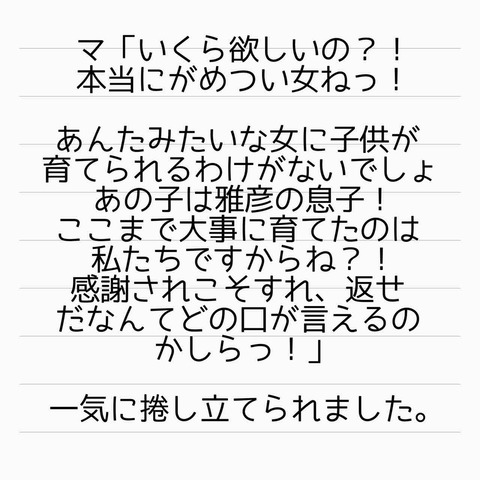 マ「いくら欲しいの？！
本当にがめつい女ねっ！
あんたみたいな女に子供が
育てられるわけがないでしょ
あの子は雅彦の息子！
ここまで大事に育てたのは
私たちですからね？！
感謝されこそすれ、返せ
だなんてどの口が言えるの
かしらっ！」
一気に捲し立てられました。